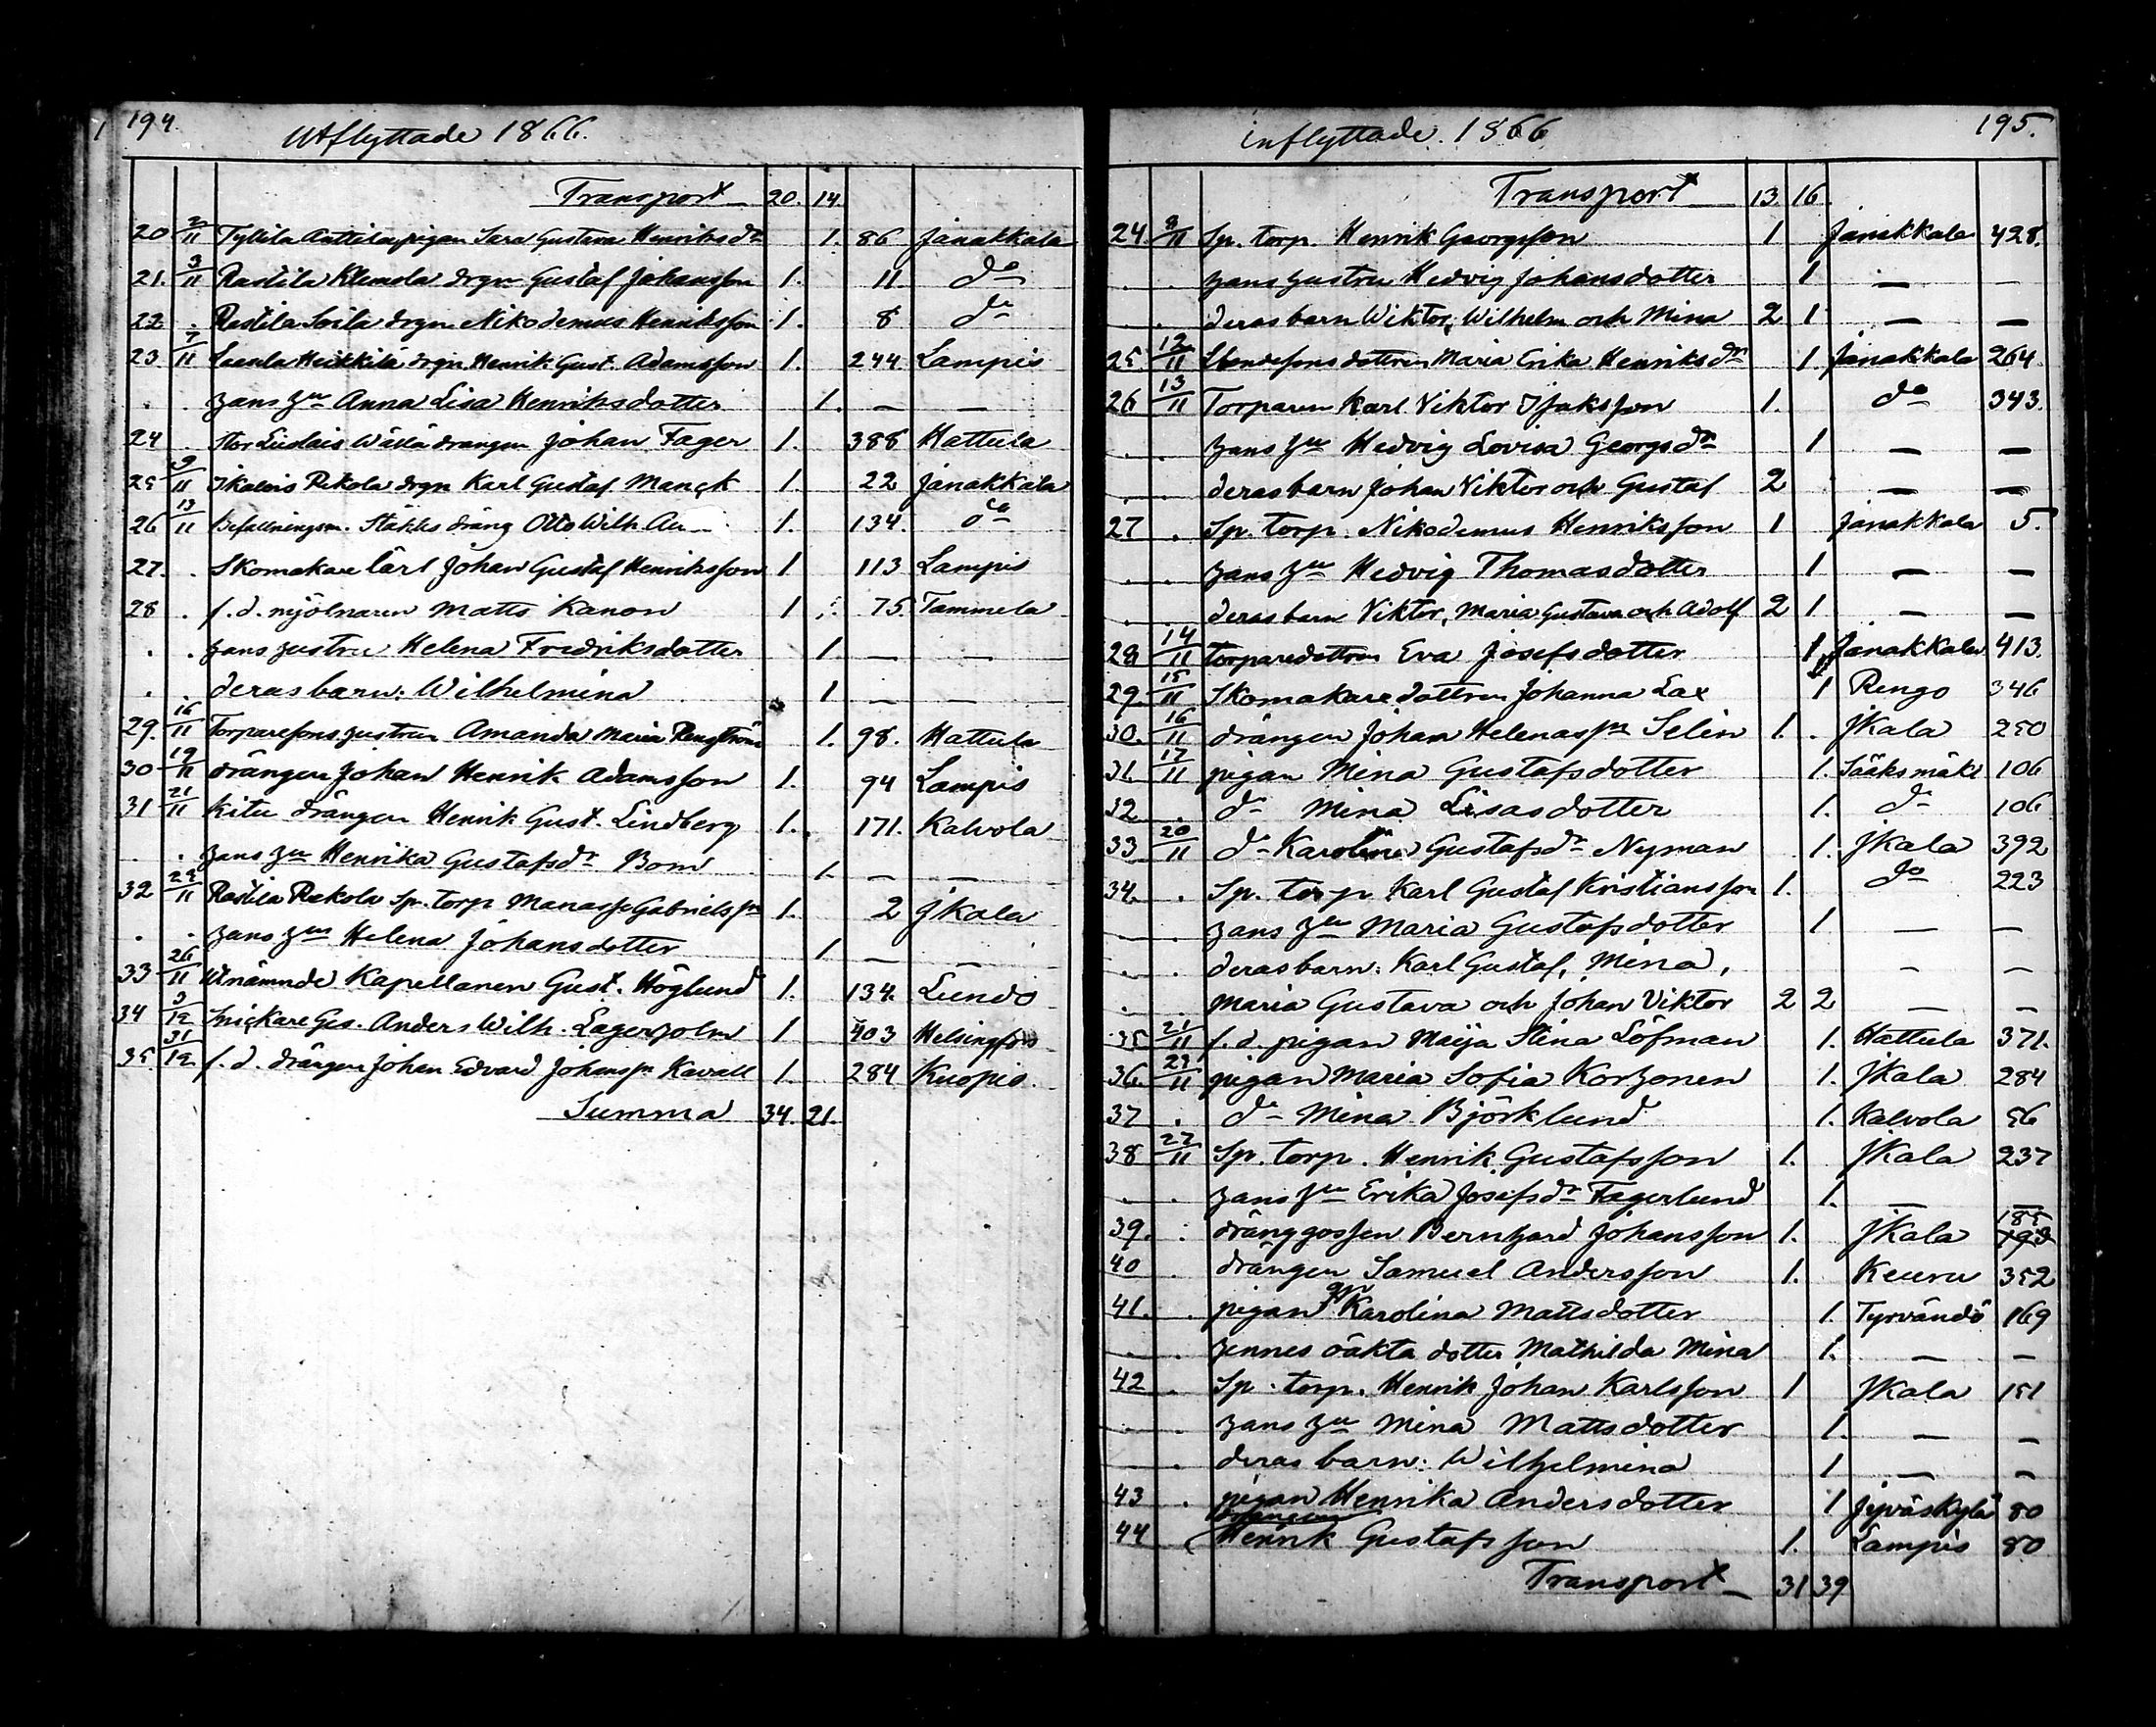 194.
Utflyttade 1866.
Transport 20. 14.
20 2/11 Tyllilä Anttila pigan Sara Gustava Henriksdr 1. 86 Janakkala
21. 3/11 Rastila Klemola drgn Gustaf Johansson 1. 11. do
22 . Rastila Soila drgn Nikodemus Henriksson 1. 8 do
23. 7/11 Heikkilä drgn. Henrik Gust. Adamsson 1. 244. Lampis
. . hans hu Anna Lisa Henriksdotter 1. — —
24 . Stor drängen Johan Fager 1. 388 Hattula
25 9/11 Ikalois Pekola drgn Karl Gustaf Manck 1. 22 Janakkala
26 13/11 Befallningsm. Ståhles dräng Otto Wilh. 1. 134. do
27. . Skomakare lärl Johan Gustaf Henriksson 1 113 Lampis
28 . f.d. mjölnaren Matts Kanon 1 75. Tammela
. . hans hustru Helena Fredriksdotter 1. — —
. . deras barn: Wilhelmina 1 — —
29. 16/11 Torparesons hustrun Amanda Maria Renström 1. 98. Hattula
30 19/11 drängen Johan Henrik Adamsson 1. 94 Lampis
31 21/11 Kitu drängen Henrik Gust. Lindberg 1. 171. Kalvola
. . hans hu Henrika Gustafsdr Bom 1. — —
32 /11 Rastila Rekola Sp. torp Manasse Gabrielssn 1. 2 JKala
. . hans hu Helena Johansdotter 1 — —
33 26/11 Utnämnde Kapellanen Gust. Höglund 1. 134. Lundo
34 3/12 Snickare Ges. Anders Wilh. Lagerholm 1 403 Helsingfors
35. 31/12 f.d. drängen Johan Edvard Johanssn Kavall 1. 284 Kuopio.
Summa 34. 21.
195.
inflyttade. 1866
Transport 13 16.
24 8/11 Sp. torp. Henrik Georgsson 1 Janakkala 428.
. . hans hustru Hedvig Johansdotter 1 — —
. . deras barn Wiktor, Wilhelm och Mina 2 1 — —
25. 12/11 dottren Maria Erika Henriksdr 1. Janakkala 264.
26 13/11 Torparen Karl Viktor Isaksson 1. do 343.
. . hans hu Hedvig Lovisa Georgsdr 1 — —
. . deras barn Johan Viktor och Gustaf 2 — —
27 . Sp. torp. Nikodemus Henriksson 1 Janakkala 5.
. . hans hu Hedvig Thomasdotter 1 — —
. . deras barn Viktor, Maria Gustava och Adolf 2 1 — —
28 14/11 torparedottren Eva Josefsdotter 1 Janakkala 413.
29. 15/11 Skomakaredottren Johanna Lax 1 Rengo 346
30. 16/11 drängen Johan Helenassn Selin 1. JKala 250
31. 17/11 pigan Mina Gustafsdotter 1. Sääksmäki 106
32 . do Mina Lisasdotter 1. do 106
33 20/11 do Karolina Gustafsdr Nyman 1. JKala 392
34. . Sp. torp Karl Gustaf Kristiansson 1. do 223
. . hans hu Maria Gustafsdotter 1 — —
. . deras barn: Karl Gustaf, Mina, — —
. . Maria Gustava och Johan Viktor 2 2 — —
35 21/11 f.d. pigan Maija Stina Löfman 1. Hattula 371.
36. 23/11 pigan Maria Sofia Korhonen 1. JKala 284
37 . do Mina Björklund 1. Kalvola 56
38 27/11 Sp. torp. Henrik Gustafsson 1. JKala 237
. . hans hu Erika Josefsdr Fagerlund 1. — —
39. . dränggossen Bernhard Johansson 1. JKala 185
40 . drängen Samuel Andersson 1. Keuru 352
41. . pigan Karolina Mattsdotter 1. Tyrvändö 169
. . hennes oäkta dotter Mathilda Mina 1. — —
42 . Sp. torp. Henrik Johan Karlsson 1 JKala 151
. . hans hu Mina Mattsdotter 1. — —
. . deras barn: Wilhelmina 1 — —
43 . pigan Henrika Andersdotter 1 Jyväskylä 80
drängen
44 Henrik Gustafsson 1. Lampis 80
Transport 31 39